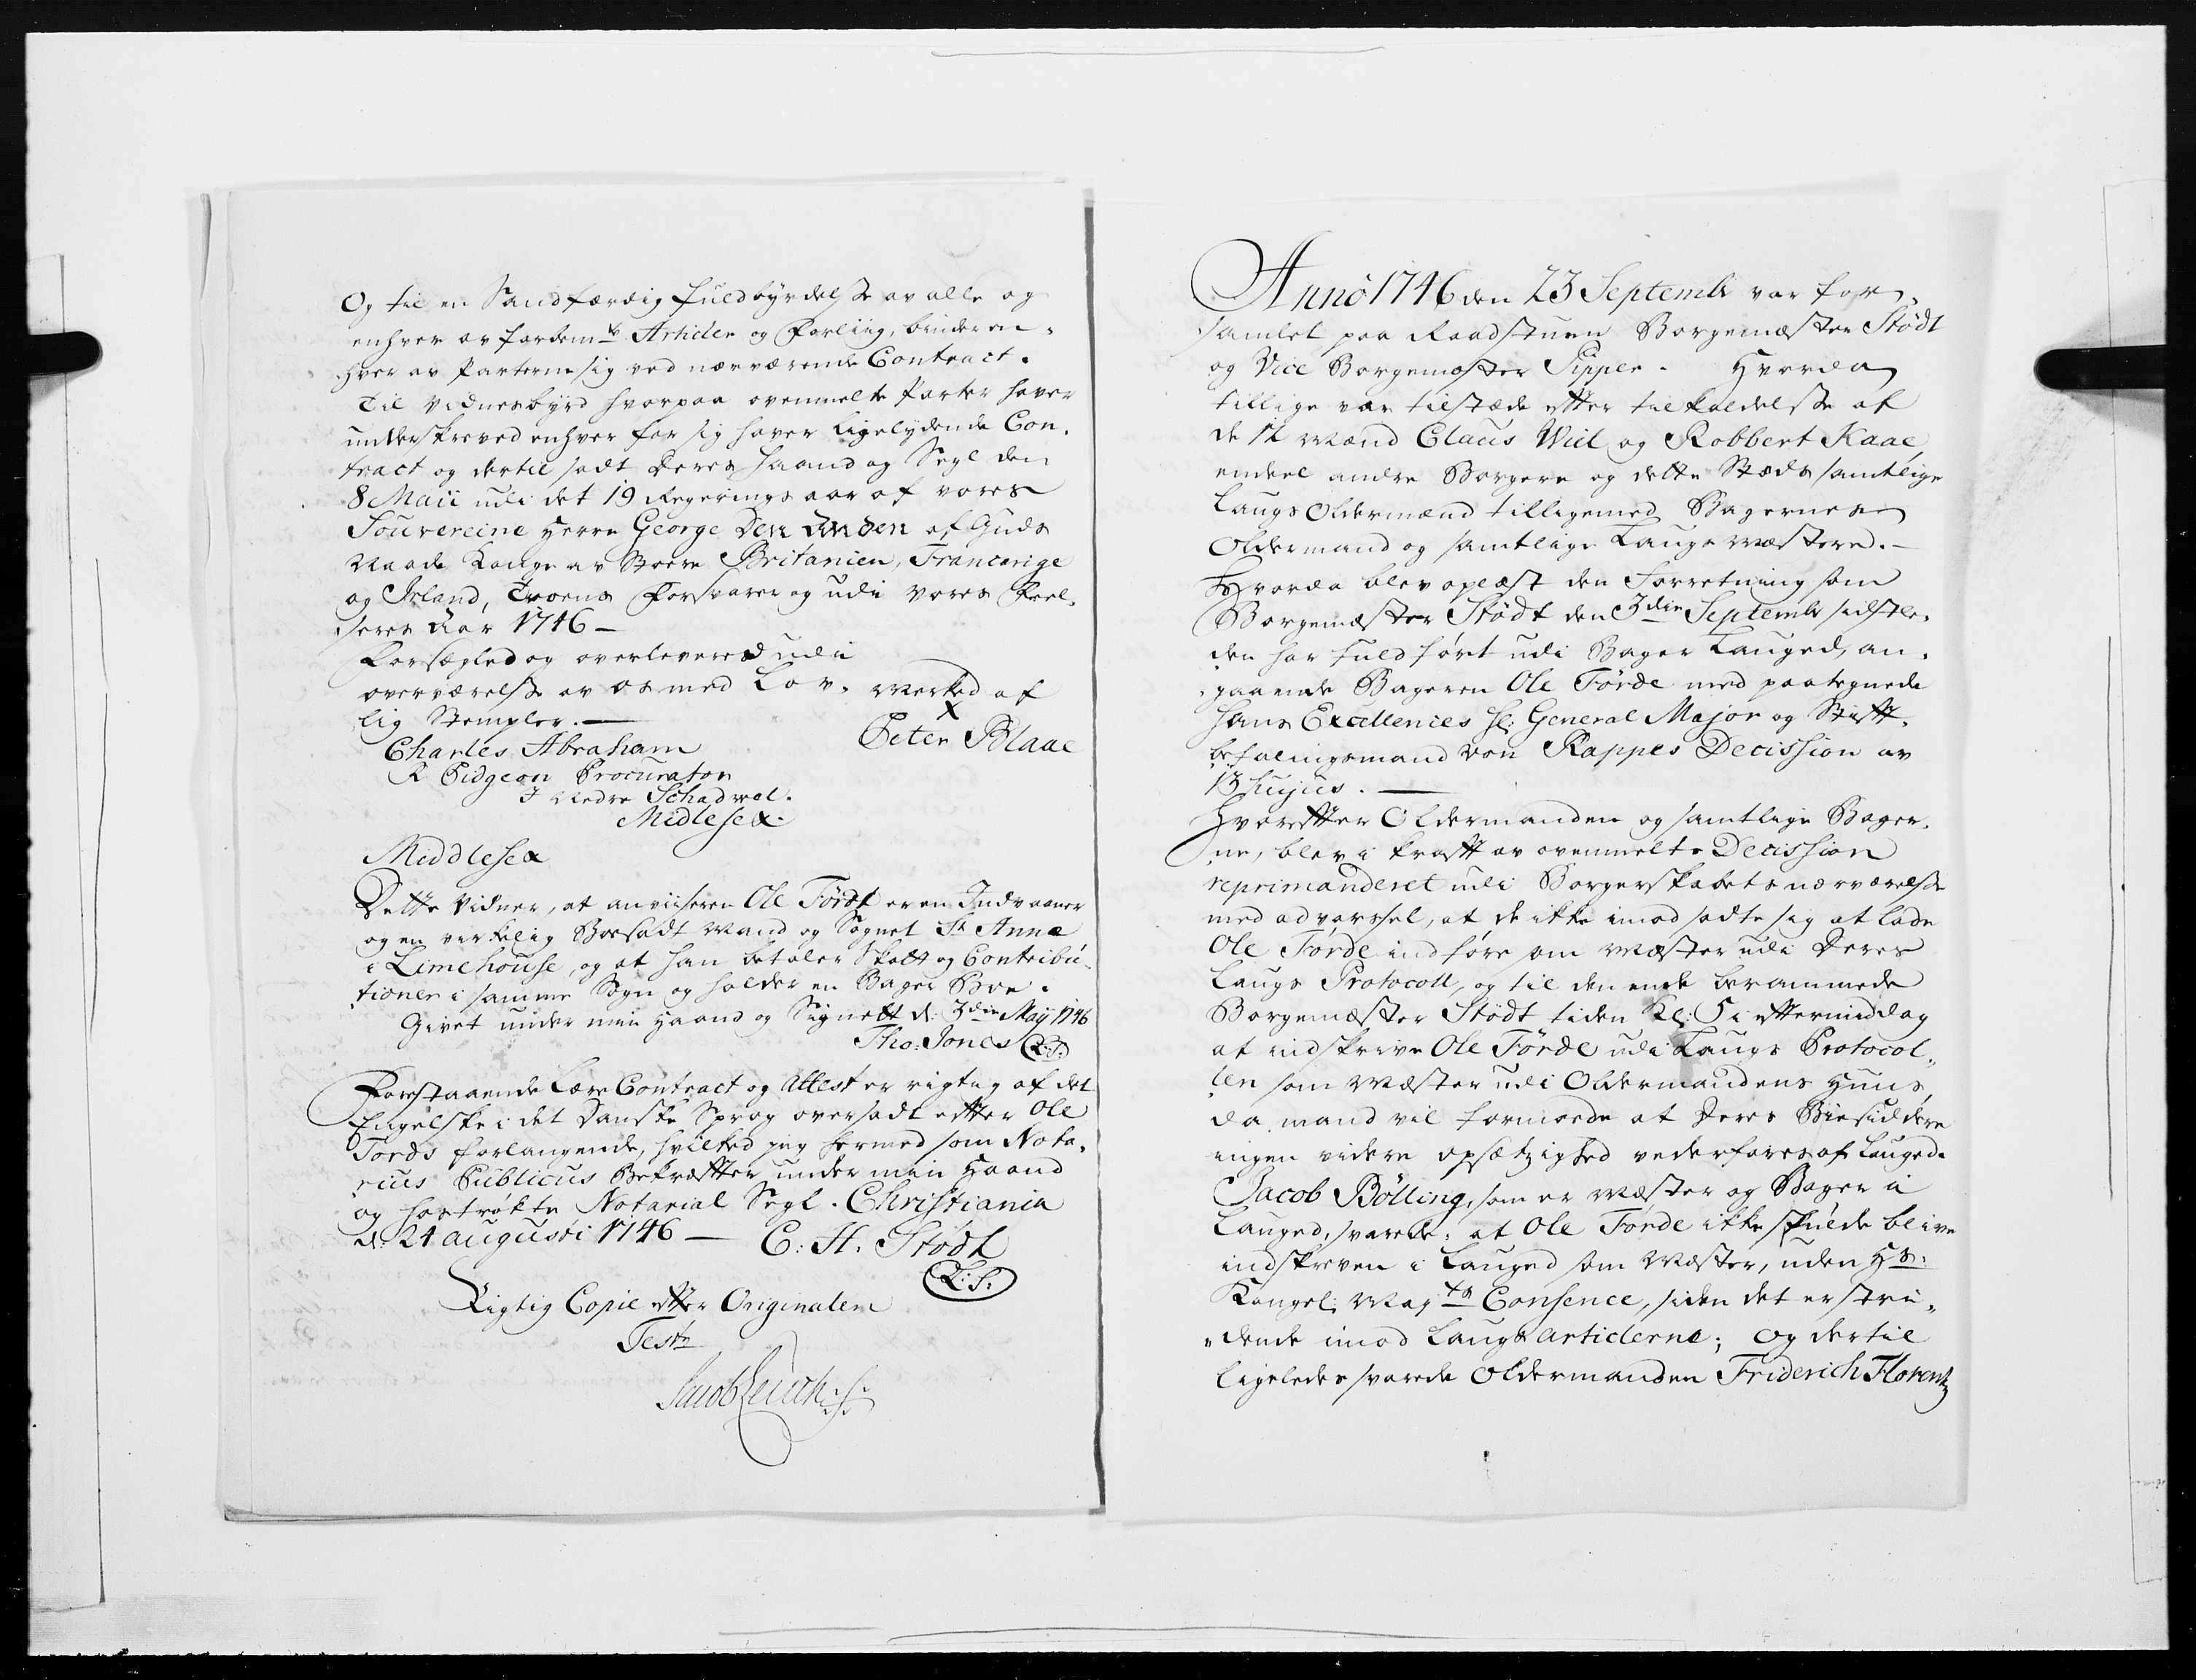 Og til en Sandfærdig fuldbyrdelse av alle og
enhver av forbemte Articler og Forliig, binder en¬
hver av Parterne sig ved nærværende Contract.
Til Vidnesbyrd hvorpaa ovenmelte Parter haver
underskreved enhver for sig haver ligelydende Con¬
tract og dertil sadt Deres Haand og Segl den
8 Maii udi det 19 Regerings aar af vores
Souvereine Herre George Den Anden af Guds
Naade Konge av Store Britanien, Francarige
og Irland, Troens Forsvarer og udi vores Frel¬
seres Aar 1746 -
Forsegled og overlevered udi
overværelse av os med Lov¬
lig Stempler. -
Merked af
X
Peter Blaae
Charles Abraham
R Pidgeon Procurator
I Nedre Schadwel.
Midlesex.
Middlesex
Dette Vidner, at anviiseren Ole Fördt er en Indvaaner
og en virkelig Boesadt Mand og Sognet St Annæ
i Limehouse, og at han betaler Skatt og Contribu¬
tioner i samme Sogn og holder en Bager Boe.
Givet under min Haand og Signett d: 3die Maij 1746
Tho: Jones (L.S.)
Forestaaende Lære Contract og Attest er rigtig af det
Engelske i det Danske Sprog oversadt effter Ole
Förds forlangende, hvilked jeg hermed som Nota¬
rius Publicus Bekræffter under min Haand
og hostrøkte Notarial Segl. Christiania
d: 24 augusti 1746 - C: H. Stödt
(L:S.)
Rigtig Copie effter Originalen
Test:
Anno 1746 den 23 Septembr var for¬
samlet paa Raadstuen Borgemæster Stödt
og Vice Borgemester Pipper. Hvorda
tillige var tilstæde effter tilkaldelse af
de 12 Mænd Claus Wiel og Robbert Kaae,
endeel andre Borgere og dette Stæds samtlige
Laugs Oldermænd tilligemed Bagernes
Oldermand og samtlige Laugs Mæstere. -
Hvorda blev oplæst den Forretning som
Borgemæster Stödt den 3die Septembr sidstle¬
den har fuldført udi Bager Lauged, an¬
gaaende Bageren Ole Förde med paategnede
Hans Excellences Hr: General Major og Stifft¬
befalingsmand von Rappes Decission av
13 hujus. -
Hvoreffter Oldermanden og samtlige Bager¬
ne, blev i krafft av ovenmelte Decission
reprimanderet udi Borgerskabets nærværelse
med advarsel, at de ikke imod sadte sig at lade
Ole Förde indføre om Mæster udi Deres
Laugs Protocoll, og til den ende berammede
Borgemæster Stödt tiden Kl: 5 i effermiddag
at indskrive Ole Förde udi Laugs Protocol¬
len som Mæster udi Oldermandens Huus,
da mand vil formode at Deres Biesiddere
ingen videre opsætzighed vederfares af Lauged.
Jacob Bölling, som er Mæster og Bager i
Lauged, svarede: at Ole Förde ikke skulde blive
indskreven i Lauged som Mæster, uden Hs:
Kongel: Mayts Consence, siden det er stri¬
dende imod Laugs articlerne; Og dertil
ligeledes svarede Oldermanden Friderich Florentz